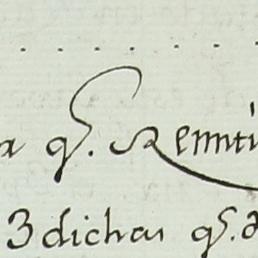 a qͤ. Remiti
3 dichas qͤ. d